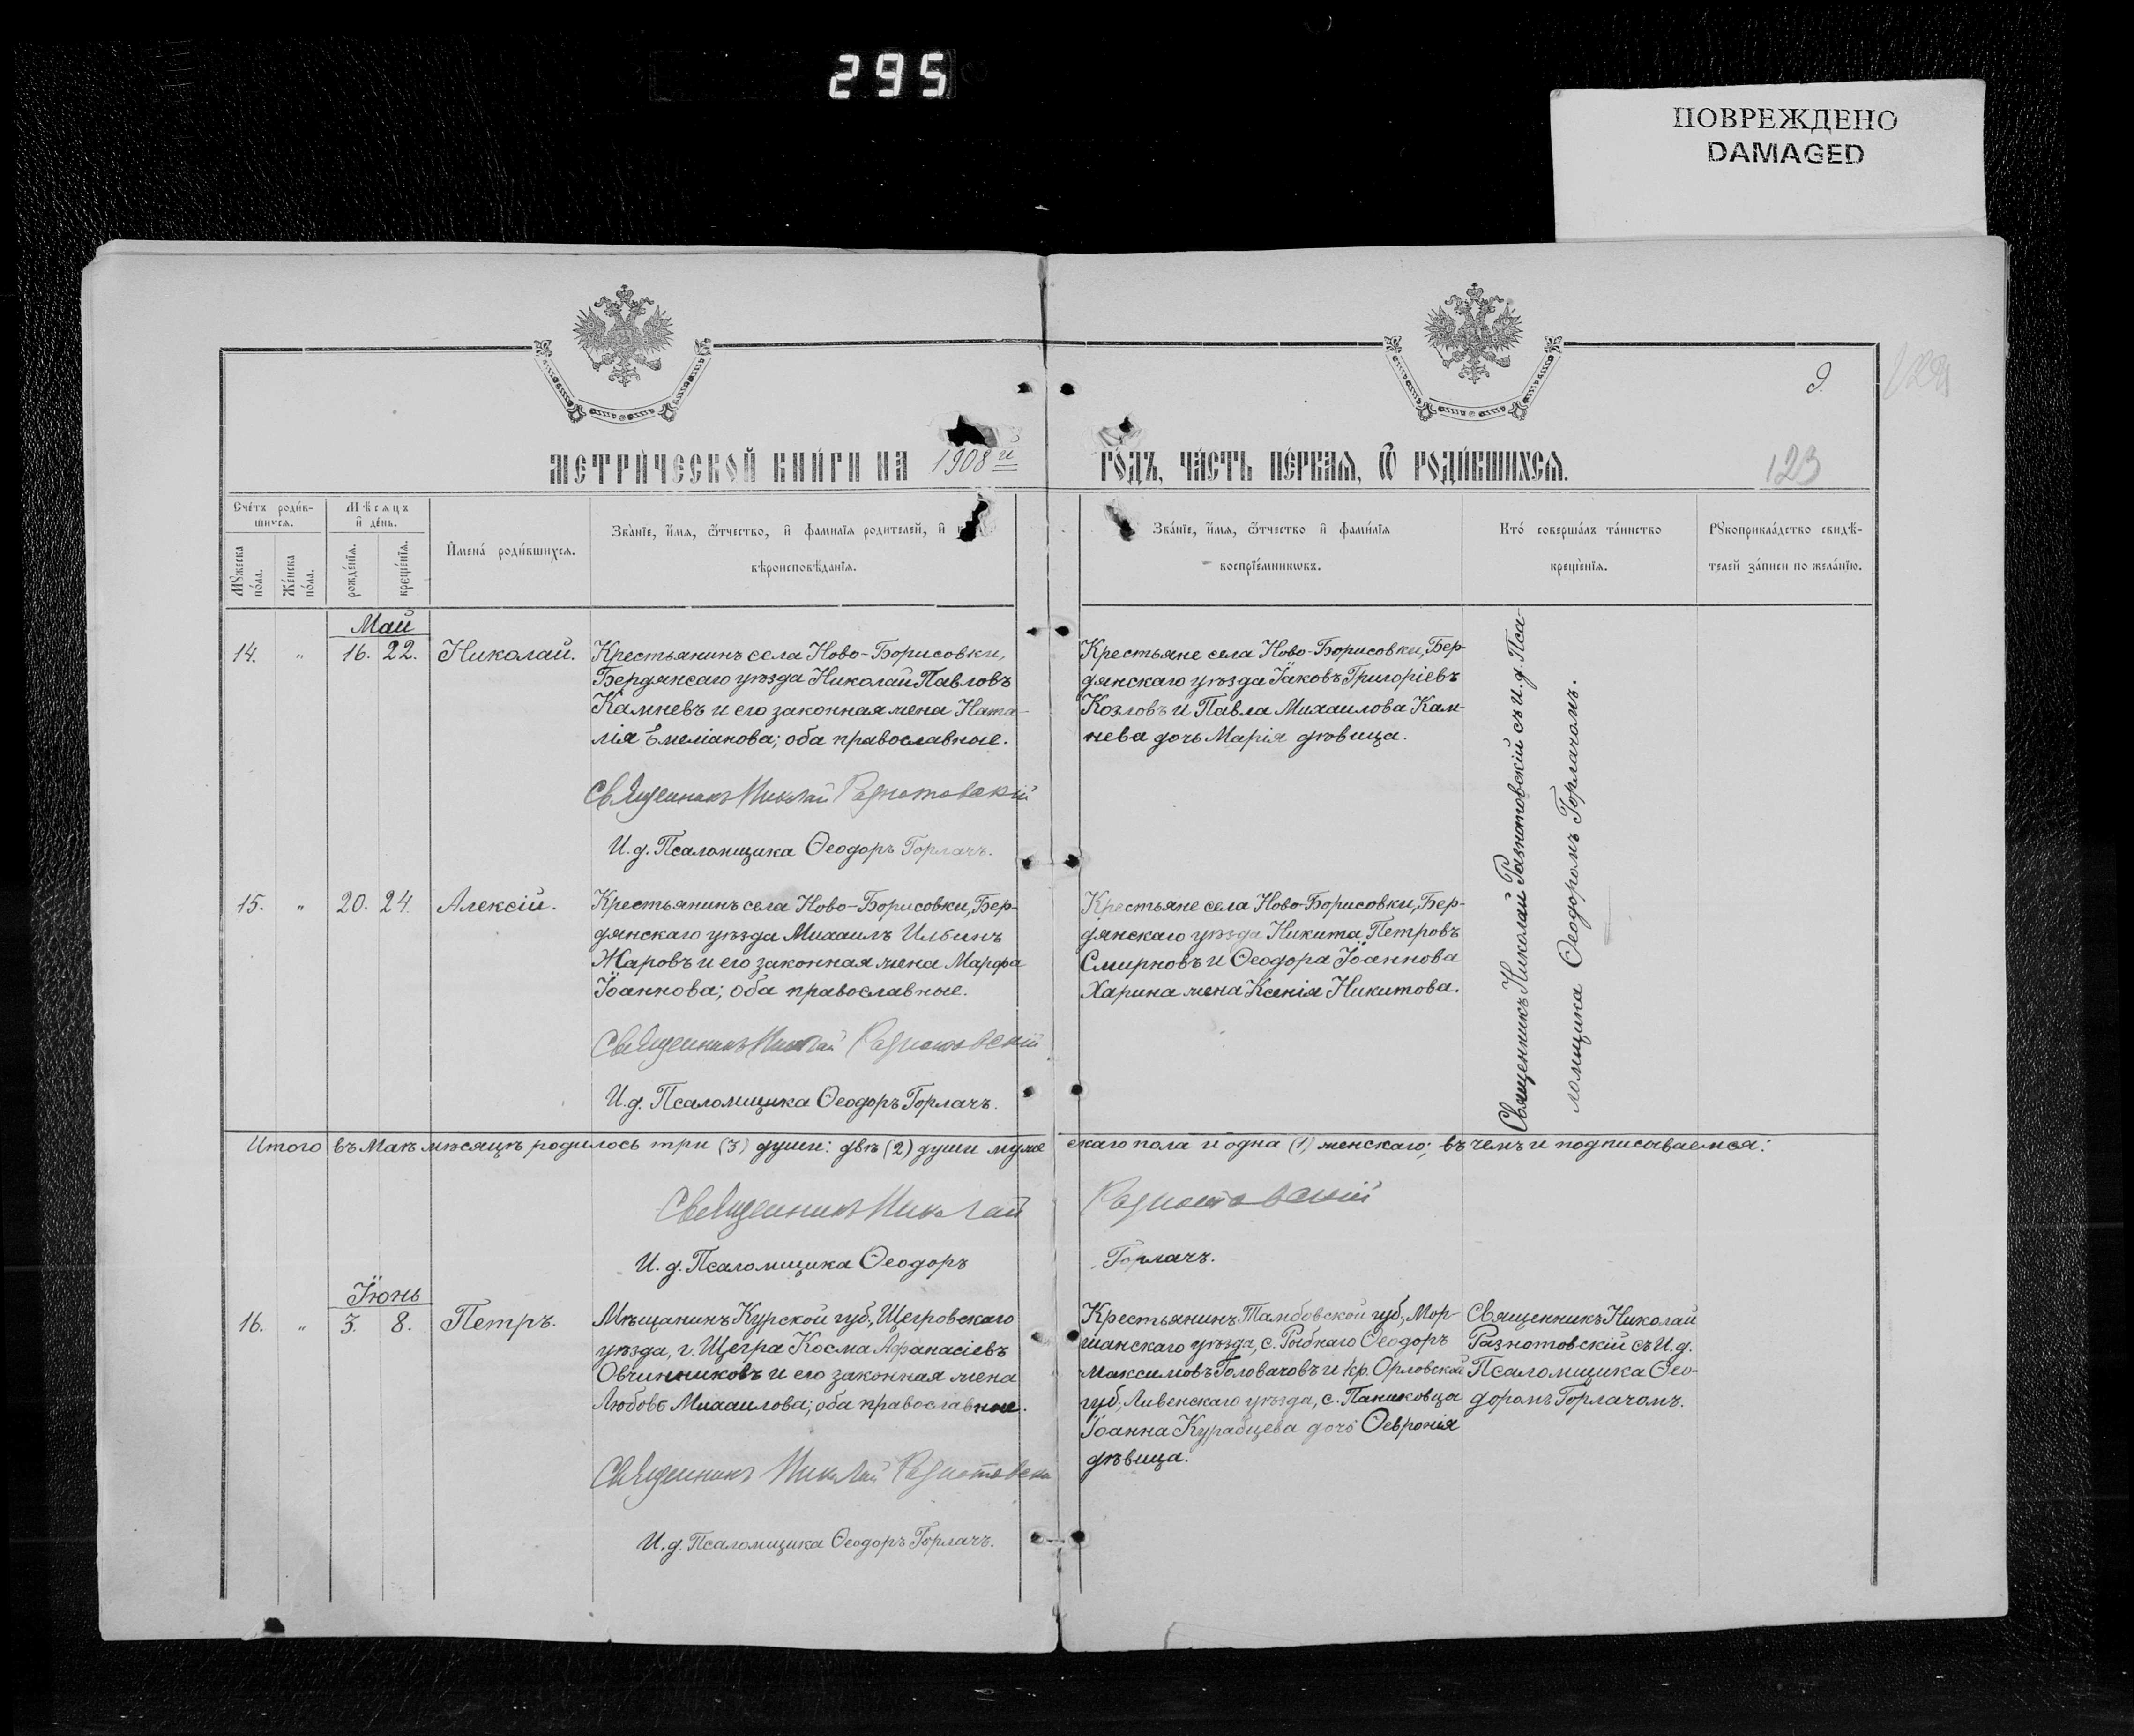 295
ПОВРЕЖДЕНО
DAMAGED
9.
123
МЕТРИ́ЧЕСКОЙ КНИ́ГИ НА 1908й ГО́ДЪ, ЧА́СТЬ ПЕ́РВАЯ, Ѿ РОДИ́ВШИХСЯ.
Сче́тъ роди́в-
шихся.
Мѣсяцъ
и҆ де́нь.
Мꙋжеска
по́ла.
Же́нска
по́ла.
рожде́нїя.
креще́нїя.
И҆мена́ роди́вшихся.
Зва́нїе, и҆́мя, ѻ҆́тчество, и҆ фами́лїя родителей, и҆
вѣроисповѣ́данїя.
Зва́нїе, и҆́мя, ѻ҆́тчество и҆ фами́лїя
воспрїе́мникѡвъ.
Кто́ соверша́лъ та́инство
креще́нїя.
Рꙋкоприкла́дство свидѣ́-
телей за́писи по жела́нїю.
Май
14. " 16. 22. Николай.
Крестьянинъ села Ново-Борисовки,
Бердянсаго уѣзда Николай Павловъ
Камневъ и его законная жена Ната-
лія Емеліанова; оба православные.
Священникъ Николай Разнотовскій
И. д. Псаломщика Ѳеодоръ Горлачъ.
Крестьяне села Ново-Борисовки, Бер-
дянскаго уѣзда Іаковъ Григоріевъ
Козловъ и Павла Михаилова Кам-
нева дочь Марія дѣвица.
Священникъ Николай Разнотовскій съ И. д. Пса-
ломщика Ѳеодоромъ Горлачомъ.
15. " 20. 24. Алексій.
Крестьянинъ села Ново-Борисовки, Бер-
дянскаго уѣзда Михаилъ Ильинъ
Жаровъ и его законная жена Марфа
Іоаннова; оба православные.
Священникъ Николай Разнотовскій
И. д. Псаломщика Ѳеодоръ Горлачъ.
Крестьяне села Ново-Борисовки, Бер-
дянскаго уѣзда Никита Петровъ
Смирновъ и Ѳеодора Іоаннова
Харина жена Ксенія Никитова.
Итого въ Маѣ мѣсяцѣ родилось три (3) души: двѣ (2) души муже скаго пола и одна (1) женскаго; въ чемъ и подписываемся:
Священникъ Николай Разнотовскій
И. д. Псаломщика Ѳеодоръ Горлачъ.
Іюнь
16. " 3. 8. Петръ.
Мѣщанинъ Курской губ., Щегровскаго
уѣзда, г. Щегра Косма Афанасіевъ
Овчинниковъ и его законная жена
Любовь Михаилова; оба православные.
Священникъ Николай Разнотовскій
И. д. Псаломщика Ѳеодоръ Горлачъ.
Крестьянинъ Тамбовской губ., Мор-
шанскаго уѣзда, с. Рыбнаго Ѳеодоръ
Максимовъ Головачовъ и кр. Орловской
губ., Ливенскаго уѣзда, с. Паниковца
Іоанна Курабцева дочь Ѳевронія
дѣвица.
Священникъ Николай
Разнотовскій съ И. д.
Псаломщика Ѳео-
доромъ Горлачомъ.